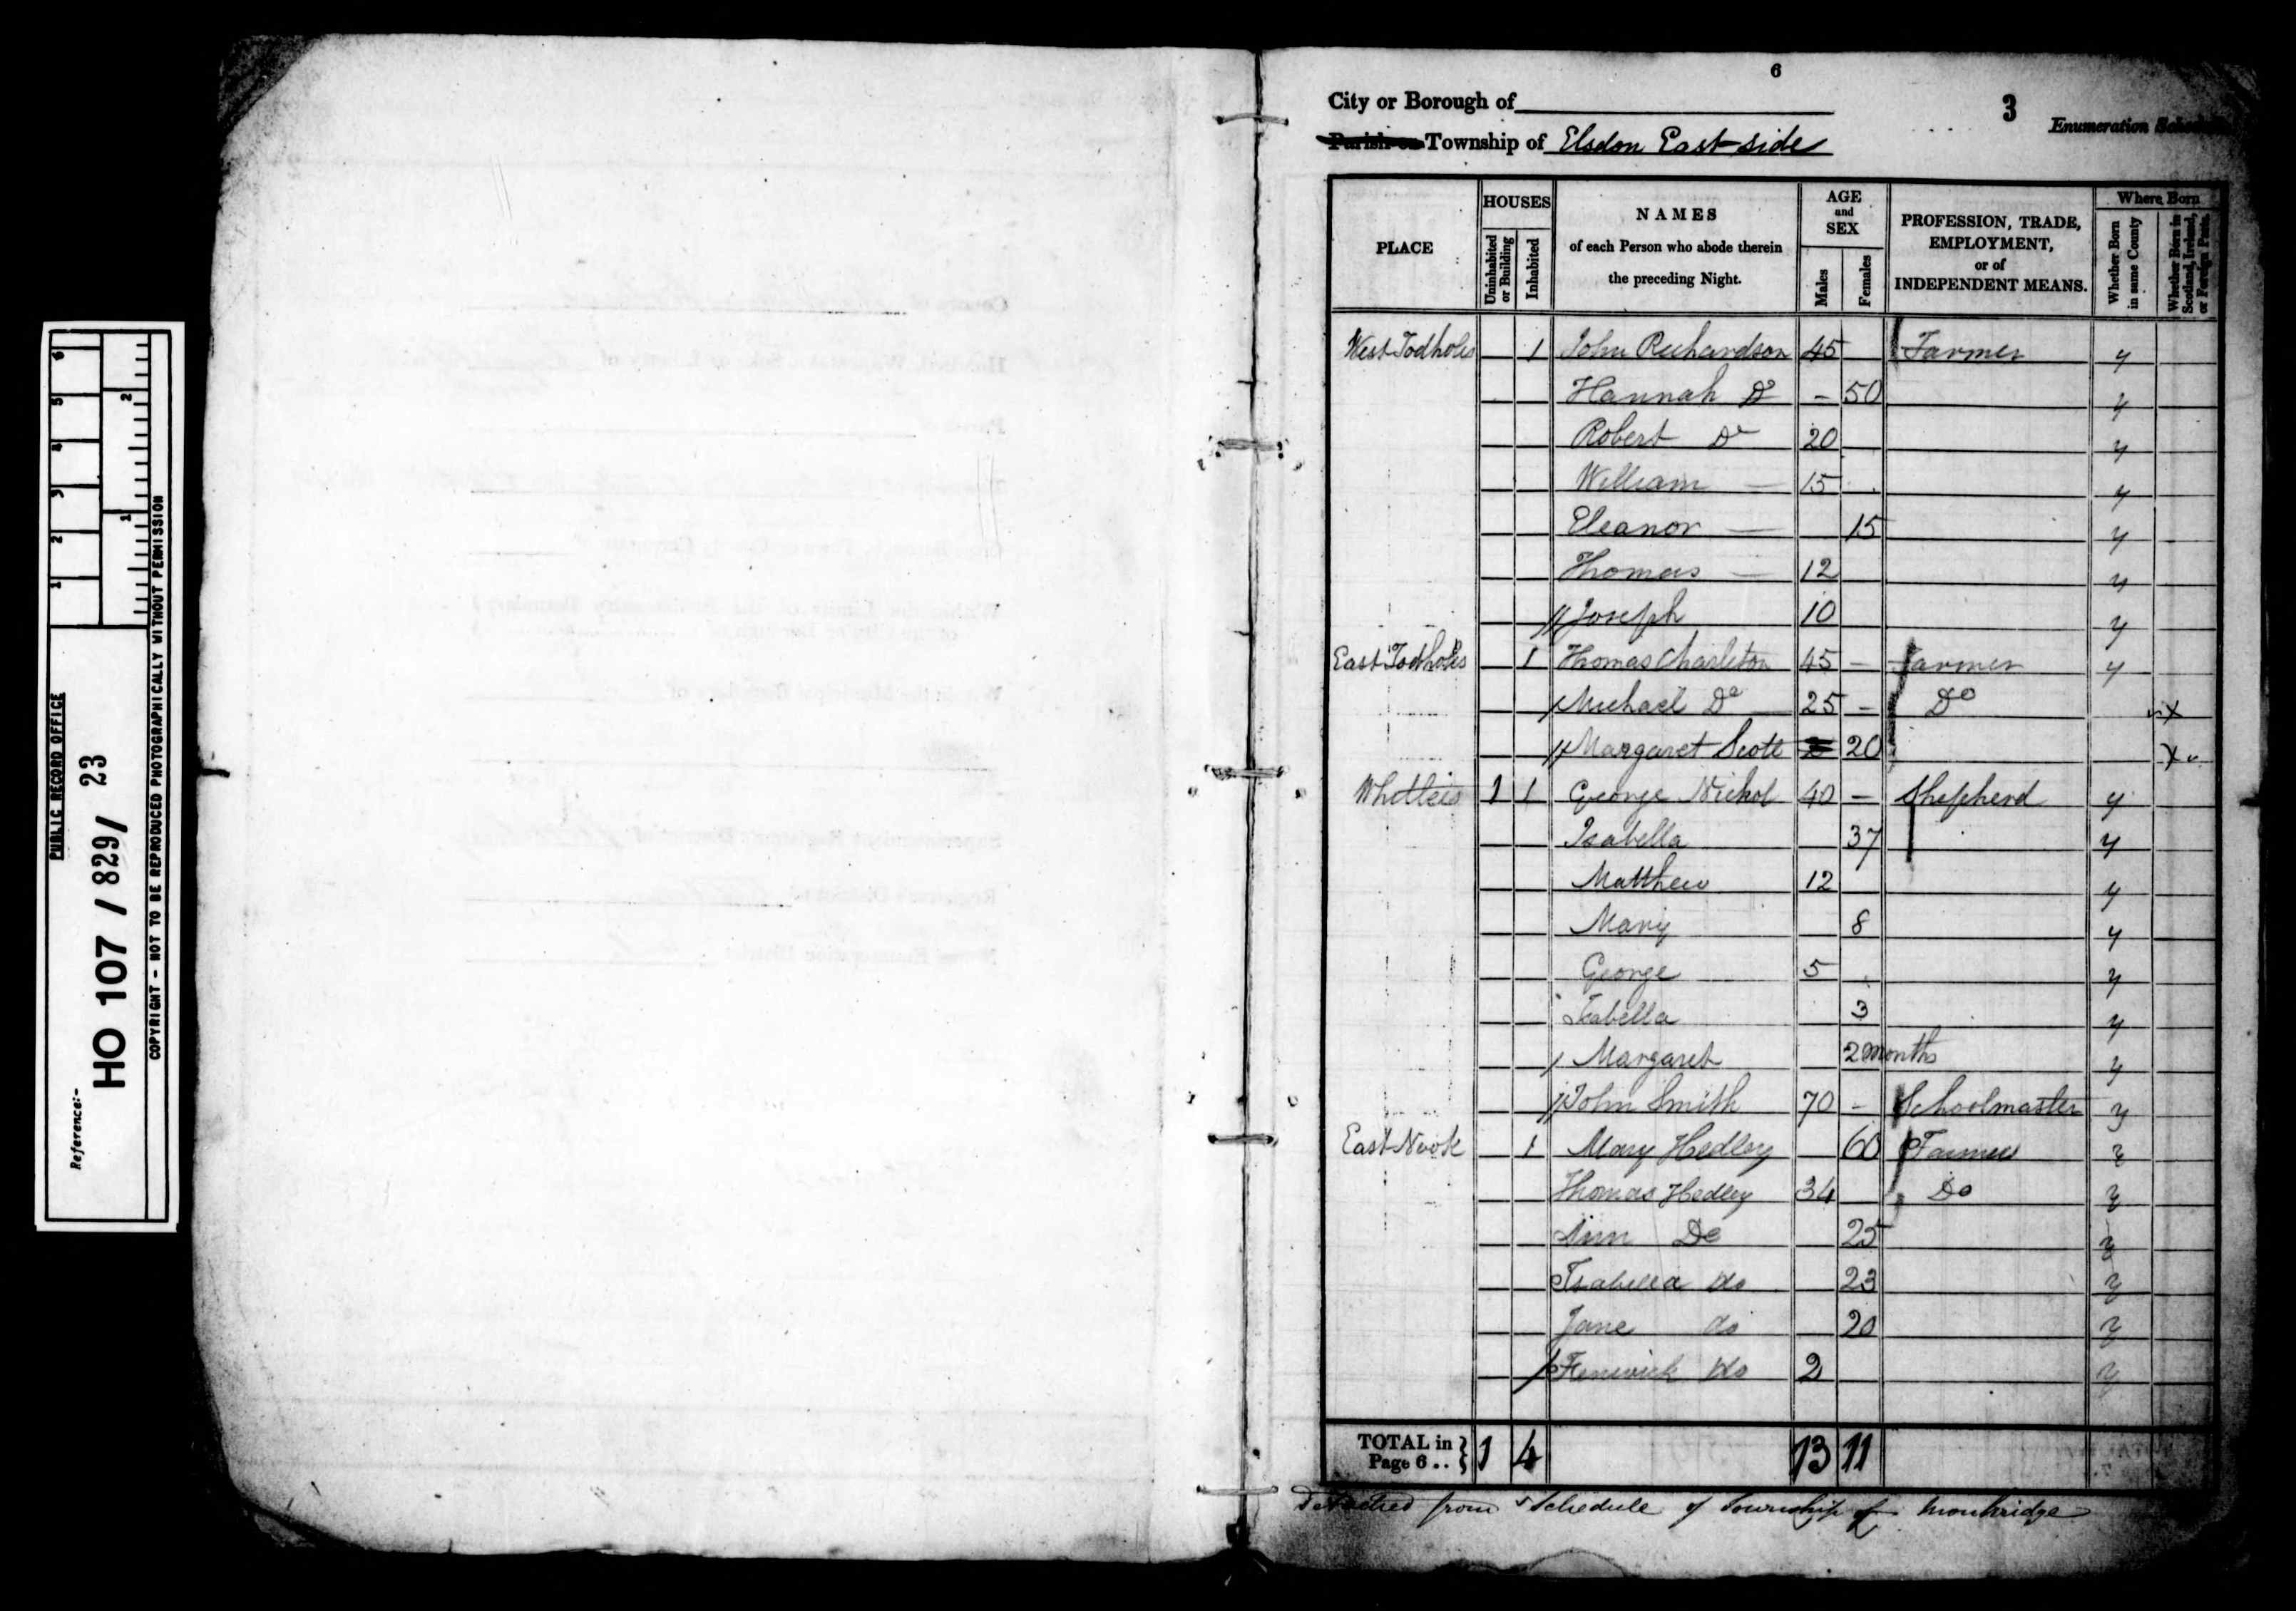 PUBLIC RECORD OFFICE
Reference:-
HO 107 / 829 / 23
COPYRIGHT - NOT TO BE REPRODUCED PHOTOGRAPHICALLY WITHOUT PERMISSION
6
City or Borough of
3
Enumeration Schedule
Parish or Township of Elsdon East side
PLACE
HOUSES
Uninhabited or Building
Inhabited
NAMES
of each Person who abode therein
the preceding Night.
AGE
and
SEX
Males
Females
PROFESSION, TRADE,
EMPLOYMENT,
or of
INDEPENDENT MEANS.
Where Born
Whether Born in same County
Whether Born in Scotland, Ireland, or Foreign Parts.
West Todholes 1 John Richardson 45 Farmer y
Hannah Do - 50 y
Robert Do 20 y
William — 15 y
Eleanor — 15 y
Thomas — 12 y
// Joseph 10 y
East Todholes 1 Thomas Charleton 45 - Farmer y
/ Michael Do 25 - Do x
// Margaret Scott 20 x
Whitleis 1 1 George Nichol 40 - Shepherd y
Isabella 37 y
Matthew 12 y
Mary 8 y
George 5 y
Isabella 3 y
/ Margaret 2 months y
// John Smith 70 - Schoolmaster y
East Nook 1 Mary Hedley 60 Farmer y
Thomas Hedley 34 Do y
Ann Do 25 y
Isabella do 23 y
Jane do 20 y
/ Fenwick do 2 y
TOTAL in Page 6 .. } 1 4 13 11
Detached from Schedule of Township of Monkridge